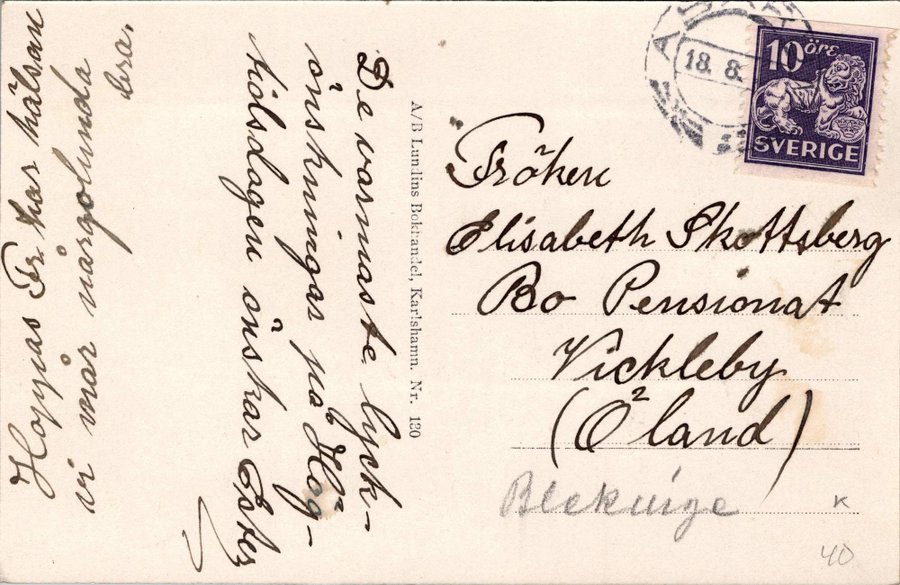 De varmaste lyck-
önskningar på Hög-
tidsdagen önskar Ester
Hoppas Fr har hälsan
vi mår någolunda
bra.
A/B Lundins Bokhandel, Karlshamn. Nr. 130
18. 8.
10 ÖRE
SVERIGE
Fröken
Elisabeth Skottsberg
Bo Pensionat
Vickleby
(Öland)
Blekinge
K
40